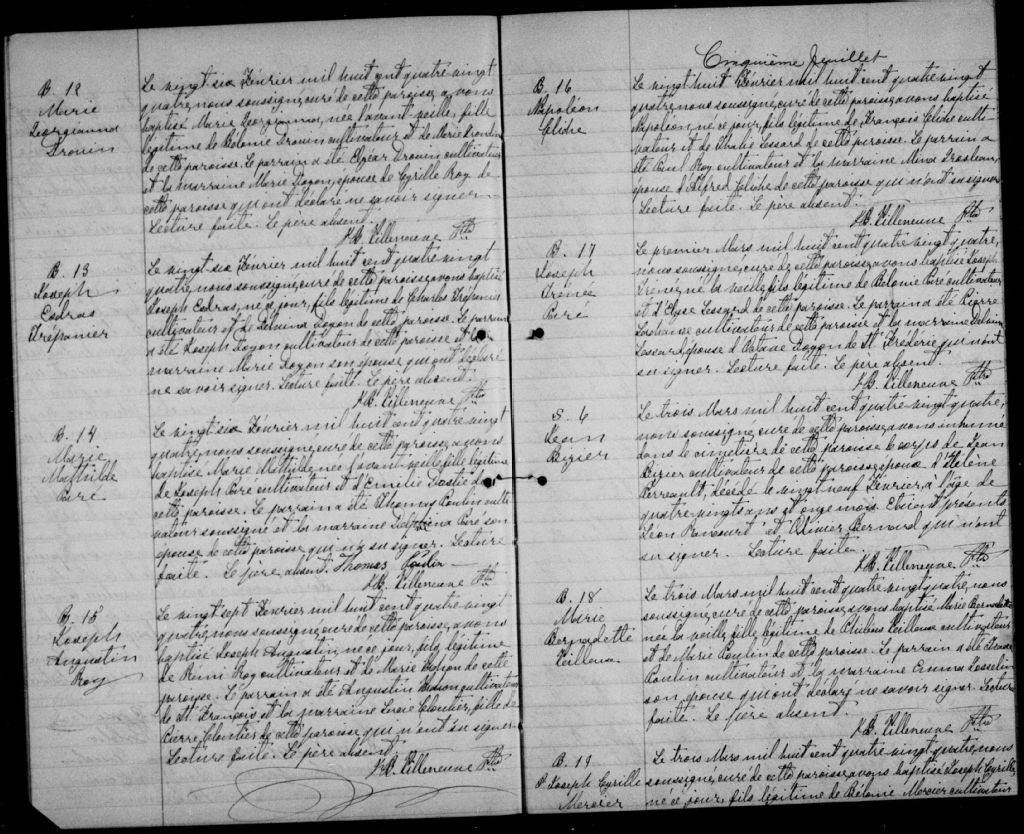 B. 12
Marie
Georgianna
Drouin
Le vingt six Février mil huit cent quatre-vingt
quatre, nous soussigné, curé de cette paroisse, avons
baptisé Marie Georgianna, née l'avant-veille, fille
légitime de Bélonie Drouin cultivateur et de Marie
de cette paroisse. Le parrain a été Elzéar Drouin cultivateur
et la marraine Marie Doyon, épouse de Cyrille Roy de
cette paroisse qui ont déclaré ne savoir signer.
Lecture faite. Le père absent.
J.B. Villeneuve Ptre
B. 13
Joseph
Esdras
Trépanier
Le vingt six Février mil huit cent quatre vingt
quatre, nous soussigné, curé de cette paroisse, avons baptisé
Joseph Esdras, né ce jour, fils légitime de Charles Trépanier
cultivateur et de Delvina Doyon de cette paroisse. Le parrain
a été Joseph Doyon cultivateur de cette paroisse et la
marraine Marie Doyon son épouse qui ont déclaré
ne savoir signer. Lecture faite. Le père absent.
J.B. Villeneuve Ptre
B. 14
Marie
Mathilde
Paré
Le vingt six Février mil huit cent quatre vingt
quatre, nous soussigné, curé de cette paroisse, avons
baptisé Marie Mathilde, née l'avant-veille, fille légitime
de Joseph Paré cultivateur et d'Emilie de
cette paroisse. Le parrain a été Thomas Poulin culti
vateur soussigné et la marraine Delphina Paré son
épouse de cette paroisse qui n'a su signer. Lecture
faite. Le père absent. Thomas Poulin
J.B. Villeneuve Ptre
B. 15
Joseph
Augustin
Roy
Le vingt sept Février mil huit cent quatre-vingt
quatre, nous soussigné, curé de cette paroisse, avons
baptisé Joseph Augustin, né ce jour, fils légitime
de Rémi Roy cultivateur et de Marie de cette
paroisse. Le parrain a été Augustin cultivateur
de St. François et la marraine Lucie Cloutier, fille de
Pierre Cloutier de cette paroisse qui n'ont su signer.
Lecture faite. Le père absent.
J.B. Villeneuve Ptre
Cinquième feuillet
B. 16
Napoléon
Cliche
Le vingt huit Février mil huit cent quatre-vingt
quatre, nous soussigné, curé de cette paroisse, avons baptisé
Napoléon, né ce jour, fils légitime de François Cliche culti-
vateur et de Lessard de cette paroisse. Le parrain a
été Paul Roy cultivateur et la marraine
épouse d'Alfred Cliche de cette paroisse qui n'ont su signer.
Lecture faite. Le père absent.
J.B. Villeneuve Ptre
B. 17
Joseph
Irénée
Paré
Le premier Mars mil huit cent quatre vingt quatre,
nous soussigné, curé de cette paroisse, avons baptisé Joseph
Irénée, né la veille, fils légitime de Bélonie Paré cultivateur
et d'Elyse Lessard de cette paroisse. Le parrain a été Pierre
cultivateur de cette paroisse et la marraine
Lessard, épouse d'Octave Doyon de St. Frédéric qui n'ont
su signer. Lecture faite. Le père absent.
J.B. Villeneuve Ptre
S. 6
Jean
Bizier
Le trois Mars mil huit cent quatre-vingt quatre,
nous soussigné, curé de cette paroisse, avons inhumé
dans le cimetière de cette paroisse le corps de Jean
Bizier cultivateur de cette paroisse, époux d'Hélène
Perreault, décédé le vingt neuf Février, à l'âge de
quatre-vingts ans et onze mois. Etaient présents
Léon Rancourt et Olivier Bernard qui n'ont
su signer. Lecture faite.
J.B. Villeneuve Ptre
B. 18
Marie
Bernadette
Veilleux
Le trois Mars mil huit cent quatre vingt quatre, nous
soussigné, curé de cette paroisse, avons baptisé Marie Bernadette
née la veille, fille légitime de Veilleux cultivateur
et de Marie Poulin de cette paroisse. Le parrain a été
Poulin cultivateur et la marraine Emma Josselin
son épouse qui ont déclaré ne savoir signer. Lecture
faite. Le père absent.
J.B. Villeneuve Ptre
B. 19
P. Joseph Cyrille
Mercier
Le trois Mars mil huit cent quatre-vingt quatre, nous
soussigné, curé de cette paroisse, avons baptisé Joseph Cyrille
né ce jour, fils légitime de Bélonie Mercier cultivateur